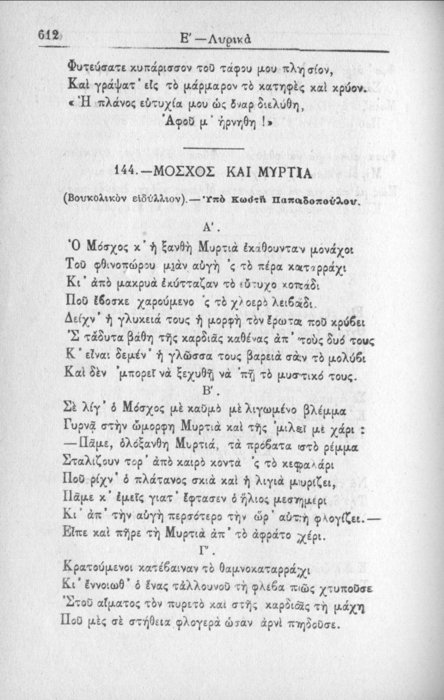 612
Ε' — Λυρικὰ
Φυτεύσατε κυπάρισσον τοῦ τάφου μου πλησίον,
Καὶ γράψατ' εἰς τὸ μάρμαρον τὸ κατηφὲς καὶ κρύον.
« Ἡ πλάνος εὐτυχία μου ὡς ὄναρ διελύθη,
Ἀφοῦ μ' ἠρνήθη ! »
144.—ΜΟΣΧΟΣ ΚΑΙ ΜΥΡΤΙΑ
(Βουκολικὸν εἰδύλλιον).— Ὑπὸ Κωστῆ Παπαδοπούλου.
Α'.
Ὁ Μόσχος κ' ἡ ξανθὴ Μυρτιὰ ἐκάθουνταν μονάχοι
Τοῦ φθινοπώρου μιὰν αὐγὴ 'ς τὸ πέρα καταρράχι
Κι' ἀπὸ μακρυὰ ἐκύτταζαν τὸ εὔτυχο κοπάδι
Ποῦ ἔβοσκε χαρούμενο 'ς τὸ χλοερὸ λειβάδι.
Δείχν' ἡ γλυκειά τους ἡ μορφὴ τὸν ἔρωτα ποῦ κρύβει
Σ τἄδυτα βάθη τῆς καρδιᾶς καθένας ἀπ' τοὺς δυό τους
Κ' εἶναι δεμέν' ἡ γλῶσσα τους βαρειὰ σὰν τὸ μολύβι
Καὶ δὲν 'μπορεῖ νὰ ξεχυθῇ νὰ 'πῇ τὸ μυστικό τους.
Β'.
Σὲ λίγ' ὁ Μόσχος μὲ καϋμὸ μὲ λιγωμένο βλέμμα
Γυρνᾷ στὴν ὤμορφη Μυρτιὰ καὶ τῆς 'μιλεῖ μὲ χάρι :
— Πᾶμε, ὁλόξανθη Μυρτιά, τὰ πρόβατα στὸ ρέμμα
Σταλίζουν τορ' ἀπὸ καιρὸ κοντὰ 'ς τὸ κεφαλάρι
Ποῦ ρίχν' ὁ πλάτανος σκιὰ καὶ ἡ λιγιὰ μυρίζει,
Πᾶμε κ' ἐμεῖς γιατ' ἔφτασεν ὁ ἥλιος μεσημέρι
Κι' ἀπ' τὴν αὐγὴ περσότερο τὴν ὥρ' αὐτὴ φλογίζει.—
Εἶπε καὶ πῆρε τὴ Μυρτιὰ ἀπ' τὸ ἀφράτο χέρι.
Γ'.
Κρατούμενοι κατέβαιναν τὸ θαμνοκαταρράχι
Κι' ἔννοιωθ' ὁ ἕνας τἄλλουνοῦ τὴ φλέβα πῶς χτυποῦσε
Στοῦ αἵματος τὸν πυρετὸ καὶ στῆς καρδιᾶς τὴ μάχη
Ποῦ μὲς σὲ στήθεια φλογερὰ ὡσὰν ἀρνὶ πηδοῦσε.